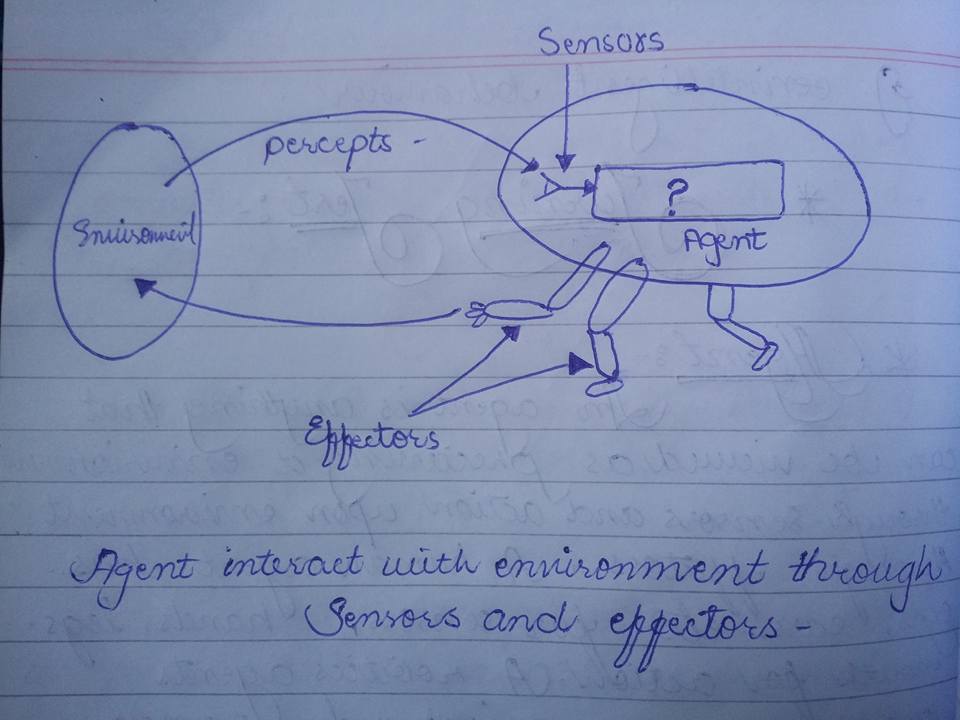 Sensors
percepts -
Environment
?
Agent
Effectors
Agent interact with environment through
Sensors and effectors -